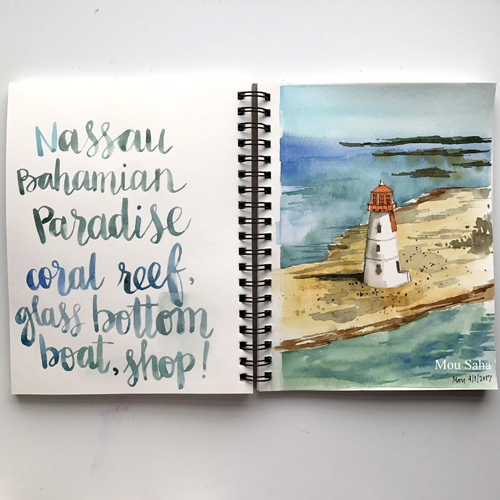 Nassau
Bahamian
Paradise
coral reef,
glass bottom
boat, shop!
Mou Saha
Mou 4/1/2017